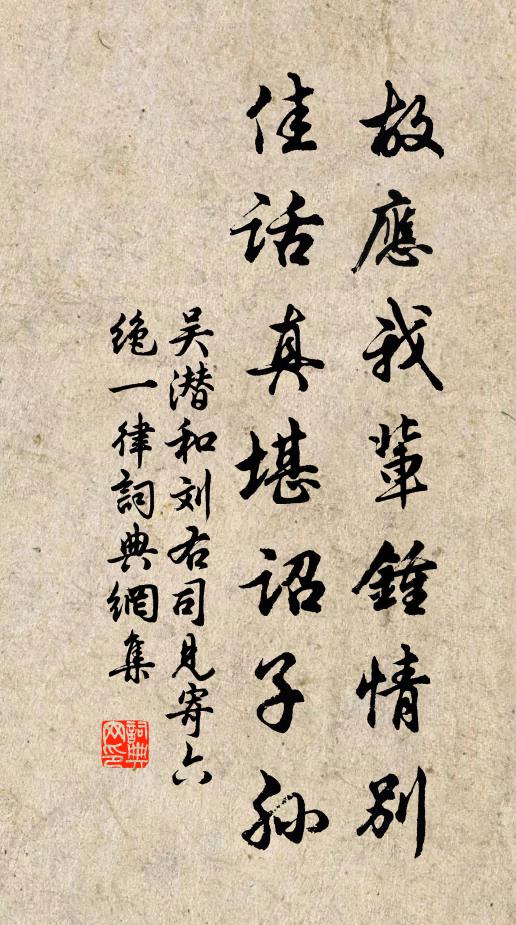 故應我輩鍾情別
佳話真堪詔子孫
吴潜和刘右司見寄六
絶一律詞典網集
詞典网印